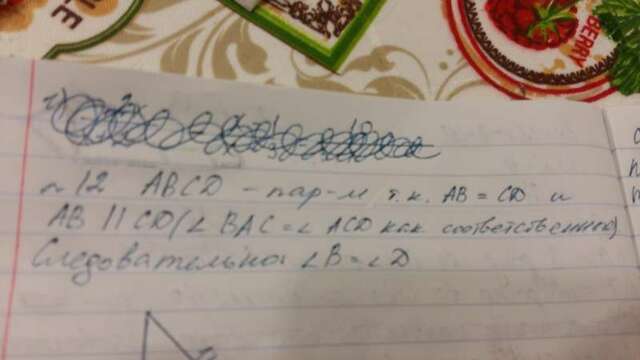 BERRY
n 12 ABCD - пар-м т.к. AB = CD и
AB || CD (∠ BAC = ∠ ACD как соответственные)
Следовательно ∠B = ∠D